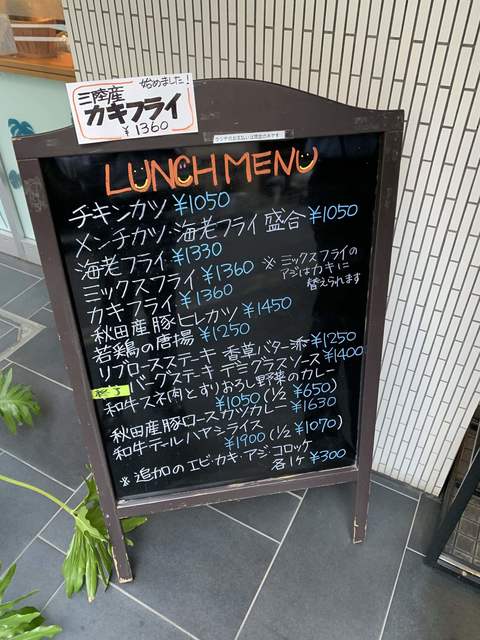 始めました!
三陸産
カキフライ
¥1360
ランチのお支払いは現金のみです
LUNCH MENU
チキンカツ ¥1050
メンチカツ・海老フライ 盛合 ¥1050
海老フライ ¥1330
ミックスフライ ¥1360 ※ ミックスフライの
アジはカキに
替えられます
カキフライ ¥1360
秋田産豚ヒレカツ ¥1450
若鶏の唐揚 ¥1250
リブロースステーキ 香草バター添 ¥1250
終了 バーグステーキ デミグラスソース ¥1400
和牛スネ肉とすりおろし野菜のカレー
¥1050 (½ ¥650)
秋田産豚ロースカツカレー ¥1630
和牛テールハヤシライス
¥1900 (½ ¥1070)
※ 追加のエビ・カキ・アジ・コロッケ
各1ケ ¥300